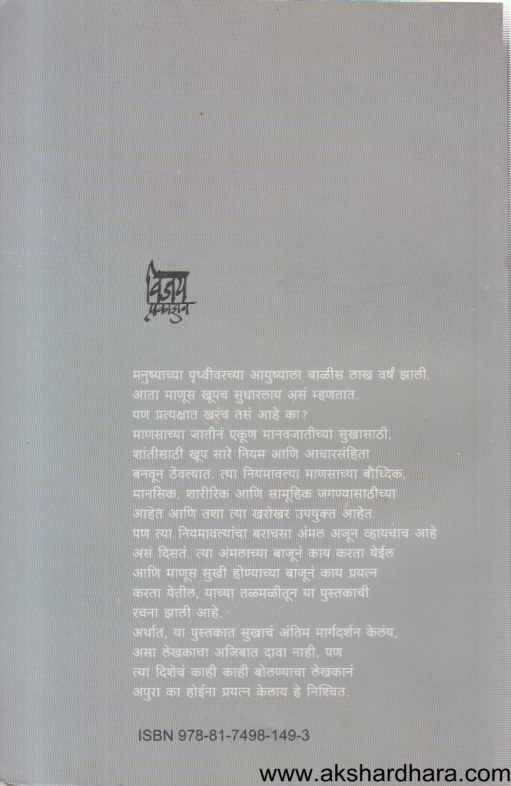 विजय
प्रकाशन
मनुष्याच्या पृथ्वीवरच्या आयुष्याला बाळीस लाख वर्षं झाली.
आता माणूस खूपच सुधारलाय असं म्हणतात.
पण प्रत्यक्षात खरंच तसं आहे का?
माणसाच्या जातीनं एकूण मानवजातीच्या सुखासाठी,
शांतीसाठी खूप सारे नियम आणि आचारसंहिता
बनवून ठेवल्यात. त्या नियमावल्या माणसाच्या बौध्दिक,
मानसिक, शारीरिक आणि सामूहिक जगण्यासाठीच्या
आहेत आणि तशा त्या खरोखर उपयुक्त आहेत.
पण त्या नियमावल्यांचा बराचसा अंमल अजून व्हायचाच आहे
असं दिसतं. त्या अंमलाच्या बाजूनं काय करता येईल
आणि माणूस सुखी होण्याच्या बाजूनं काय प्रयत्न
करता येतील, याच्या तळमळीतून या पुस्तकाची
रचना झाली आहे.
अर्थात, या पुस्तकात सुखाचं अंतिम मार्गदर्शन केलंय,
असा लेखकाचा अजिबात दावा नाही, पण
त्या दिशेचं काही काही बोलण्याचा लेखकानं
अपुरा का होईना प्रयत्न केलाय हे निश्चित.
ISBN 978-81-7498-149-3
www.akshardhara.com